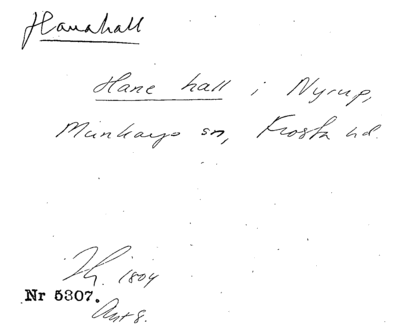 Hanahall
Hane hall i Nyrup,
Munkarps sn, Frosta hd.
1804
Nr 5307.
Akt 8.